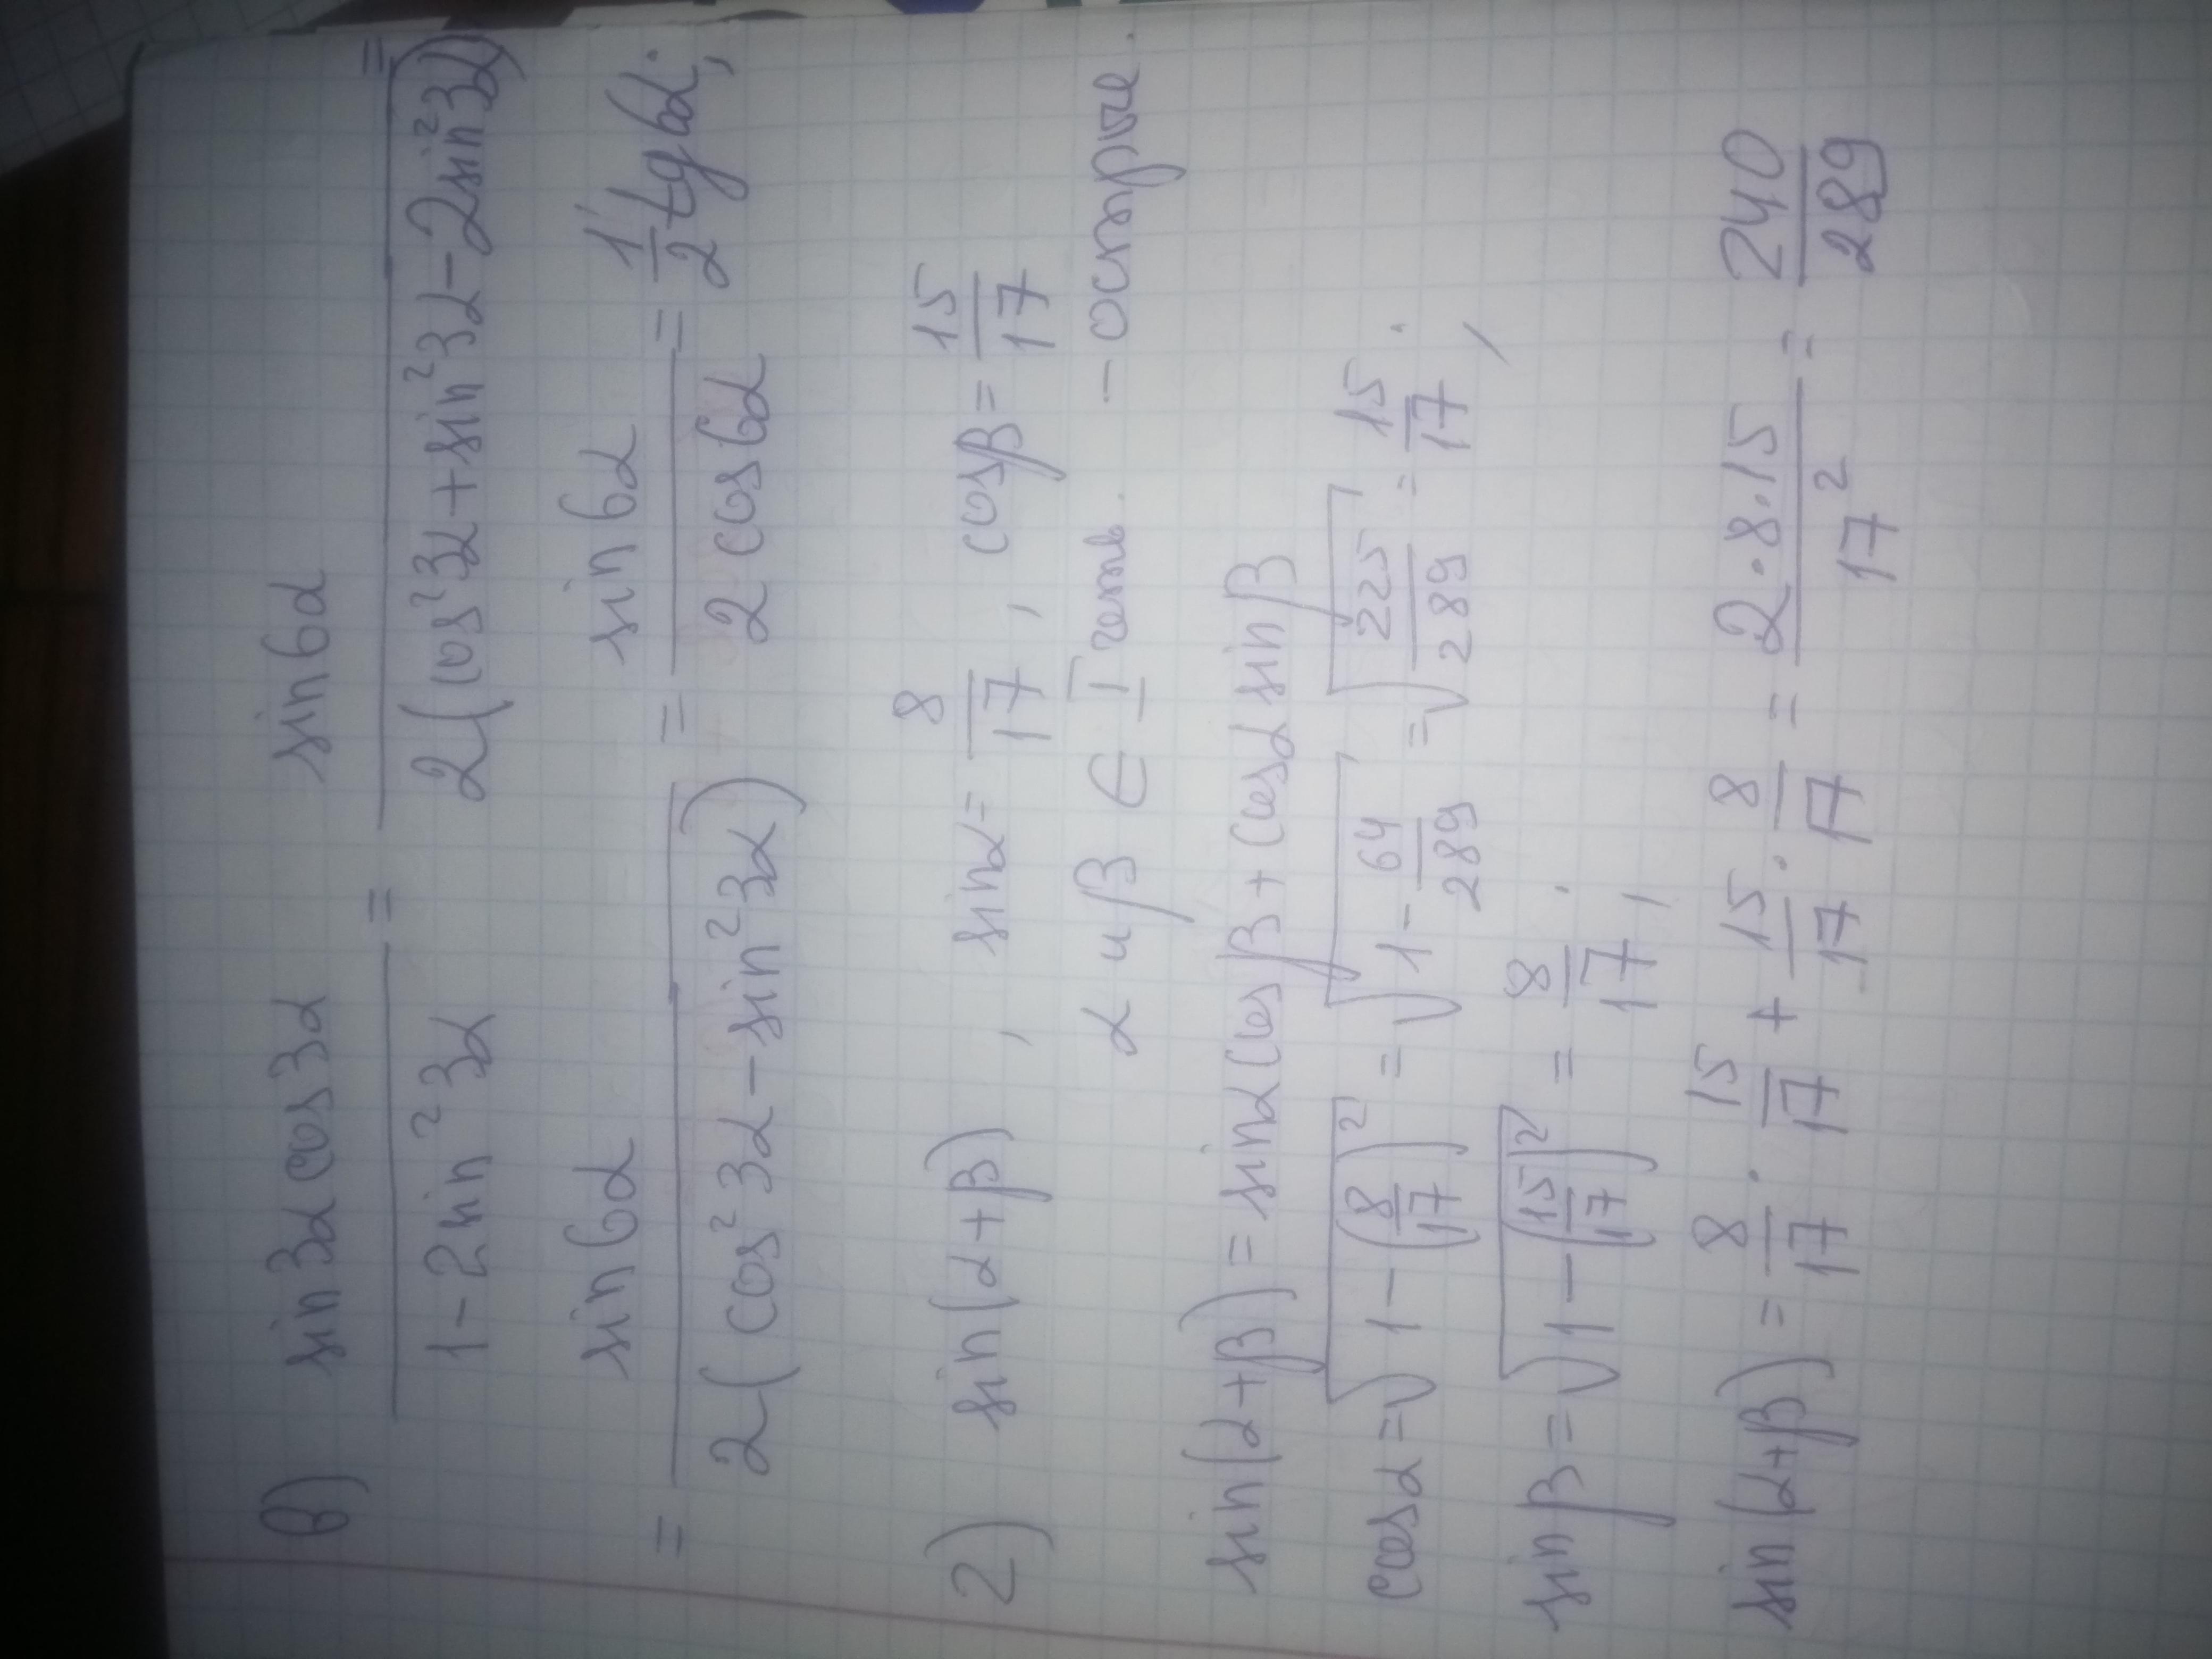 в) sin3α cos3α / 1-2sin²3α = sin6α / 2(cos²3α+sin²3α-2sin²3α) =
= sin6α / 2(cos²3α-sin²3α) = sin6α / 2cos6α = 1/2 tg6α;
2) sin(α+β), sinα= 8/17, cosβ= 15/17
α и β ∈ I четв. - острые.
sin(α+β)=sinαcosβ+cosαsinβ
cosα=√(1-(8/17)²) = √(1-64/289) = √(225/289) = 15/17;
sinβ=√(1-(15/17)²) = 8/17;
sin(α+β)= 8/17 · 15/17 + 15/17 · 8/17 = 2·8·15 / 17² = 240/289